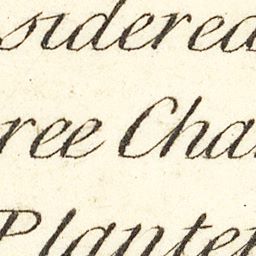 sidered
ree Cha
Plante